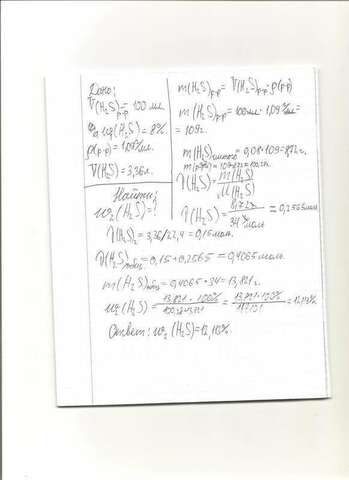 Дано:
V(H₂S)р-р = 100 мл
ω(H₂S) = 8%.
ρ(р-р) = 1,09 г/мл.
V(H₂S) = 3,36 л.
Найти:
ω₂(H₂S) = ?
m(H₂S)р-р = V(H₂S)р-р · ρ(р-р)
m(H₂S)р-р = 100мл · 1,09 г/мл =
= 109г.
m(H₂S) = 0,08 · 109 = 8,72 г.
ν(H₂S) = m(H₂S) / M(H₂S)
ν(H₂S) = 8,72г / 34 г/моль = 0,2565 моль
ν(H₂S)₂ = 3,36/22,4 = 0,15 моль.
ν(H₂S)общ. = 0,15 + 0,2565 = 0,4065 моль.
m(H₂S)общ = 0,4065 · 34 = 13,821 г.
ω₂(H₂S) = 13,821 · 100% / = 13,821 · 100% / = 12,118%
Ответ: ω₂(H₂S) = 12,118%.